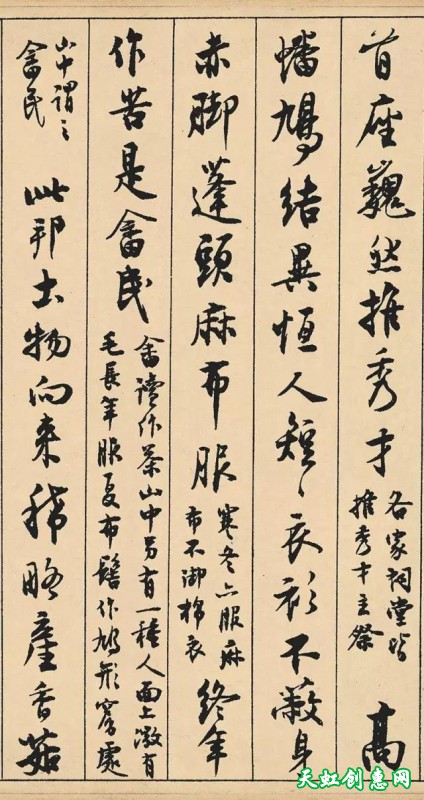 首座巍然推秀才
各家祠堂皆
推秀才主祭
高
蟠鳩結異恒人短〻衣衫不蔽身
赤脚蓬頭麻布服
寒冬亦服麻
布不御棉衣
終年
作苦是畬民
畬讀作茶山中另有一種人面上微有
毛長年服夏布髻作鳩形窩處
山中謂之
畬民
此邦土物向来稀略產香菇
天虹创惠网